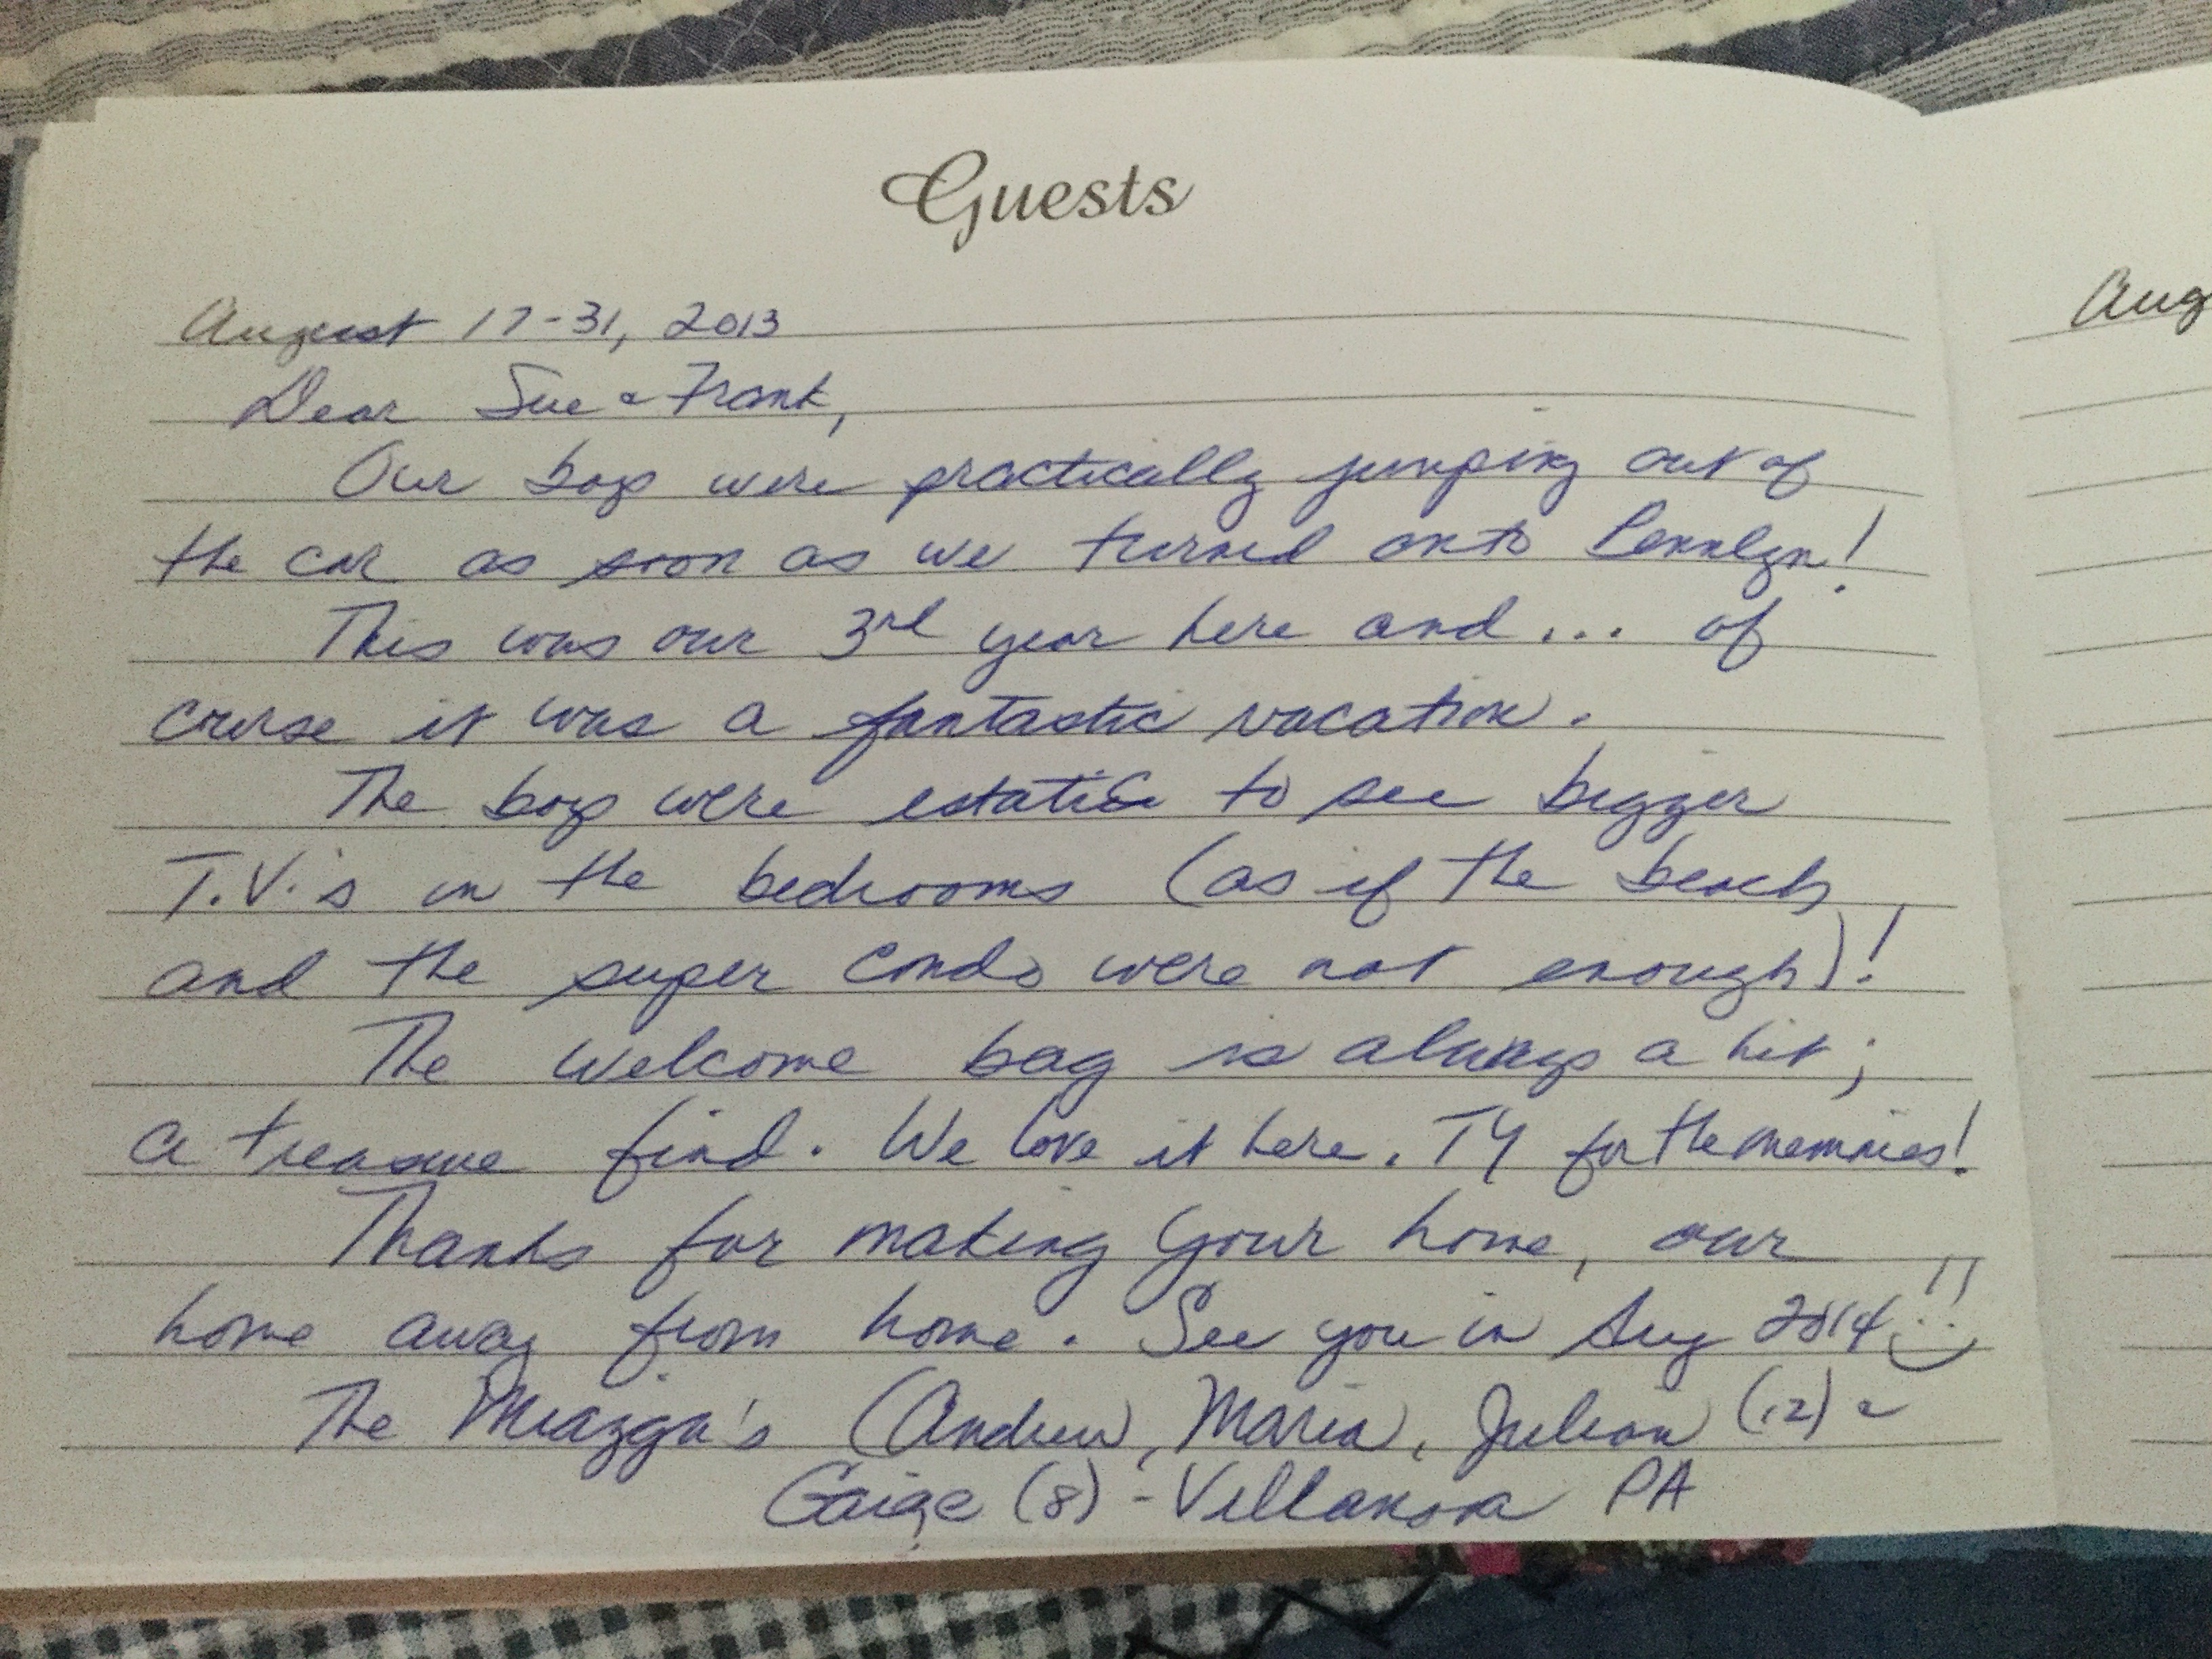 Guests
August 17-31, 2013
Dear Sue & Frank,
Our boys were practically jumping out of
the car as soon as we turned onto Pennlyn!
This was our 3rd year here and... of
course it was a fantastic vacation.
The boys were estatic to see bigger
T.V.'s in the bedrooms (as if the beach
and the super condo were not enough)!
The welcome bag is always a hit;
a treasure find. We love it here. TY for the memories!
Thanks for making your home, our
home away from home. See you in Aug 2014!!
The Miazga's (Andrew, Maria, Julian (12) &
Gaige (8) - Villanova PA
Aug